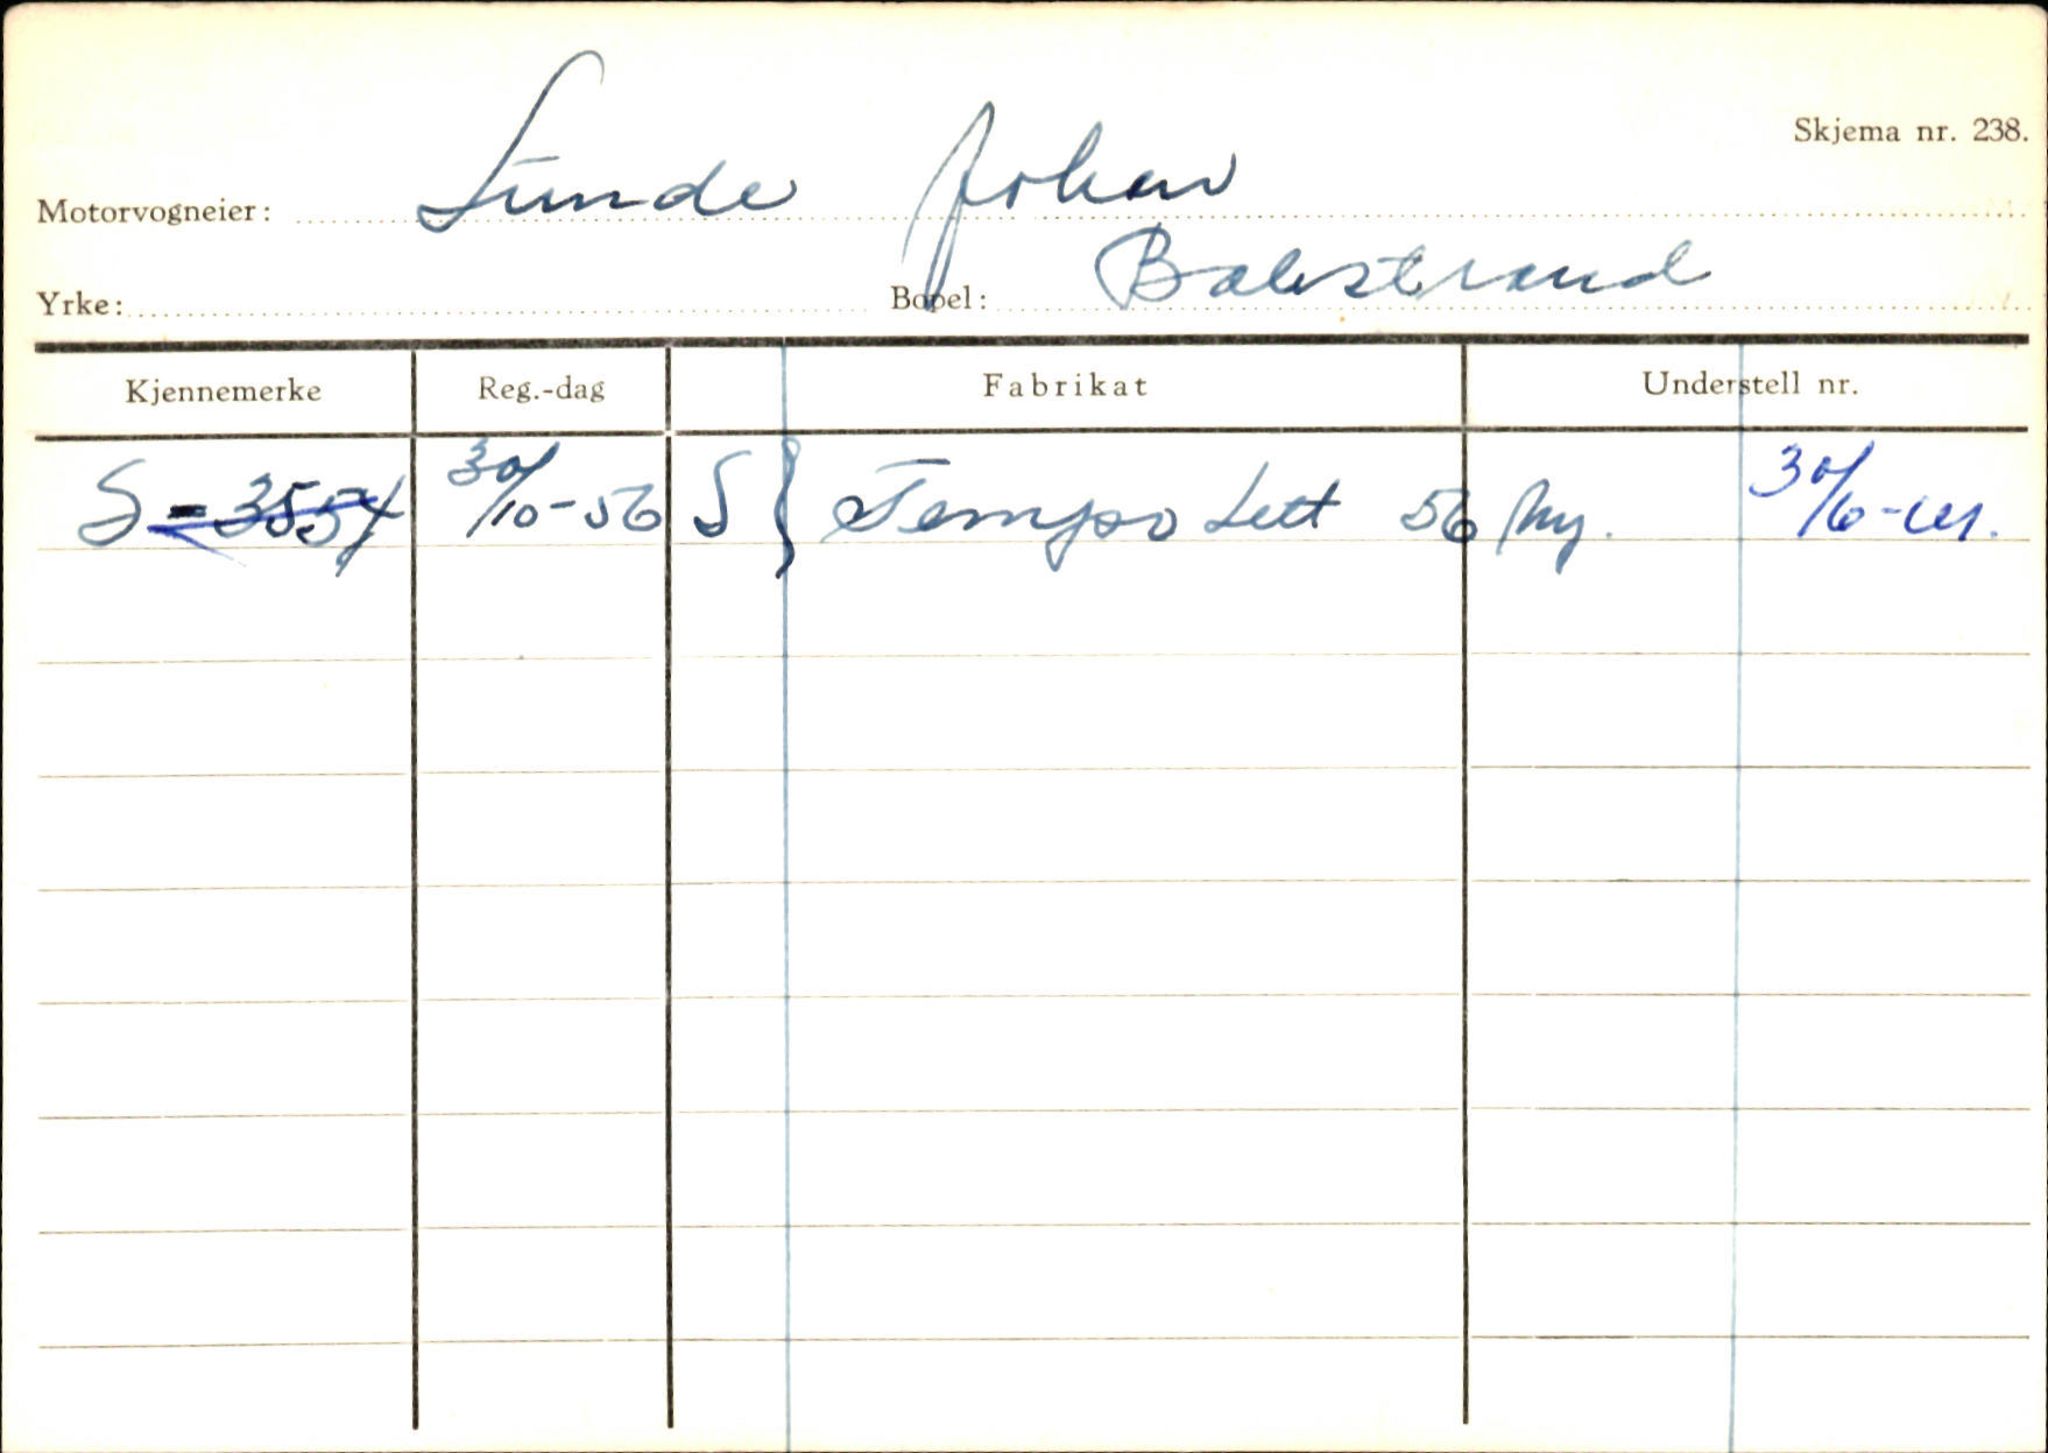 Skjema nr. 238.
Motorvogneier: Lunde Johan
Yrke: Bopel: Balestrand
Kjennemerke Reg.-dag Fabrikat Understell nr.
S-3554 30/10-56 S } Tempo Lett 56 ny. 30/6-61.